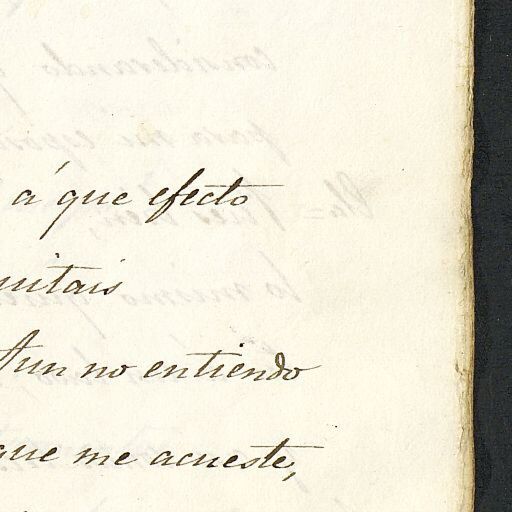 á que efecto
uitais
Aun no entiendo
que me acueste,